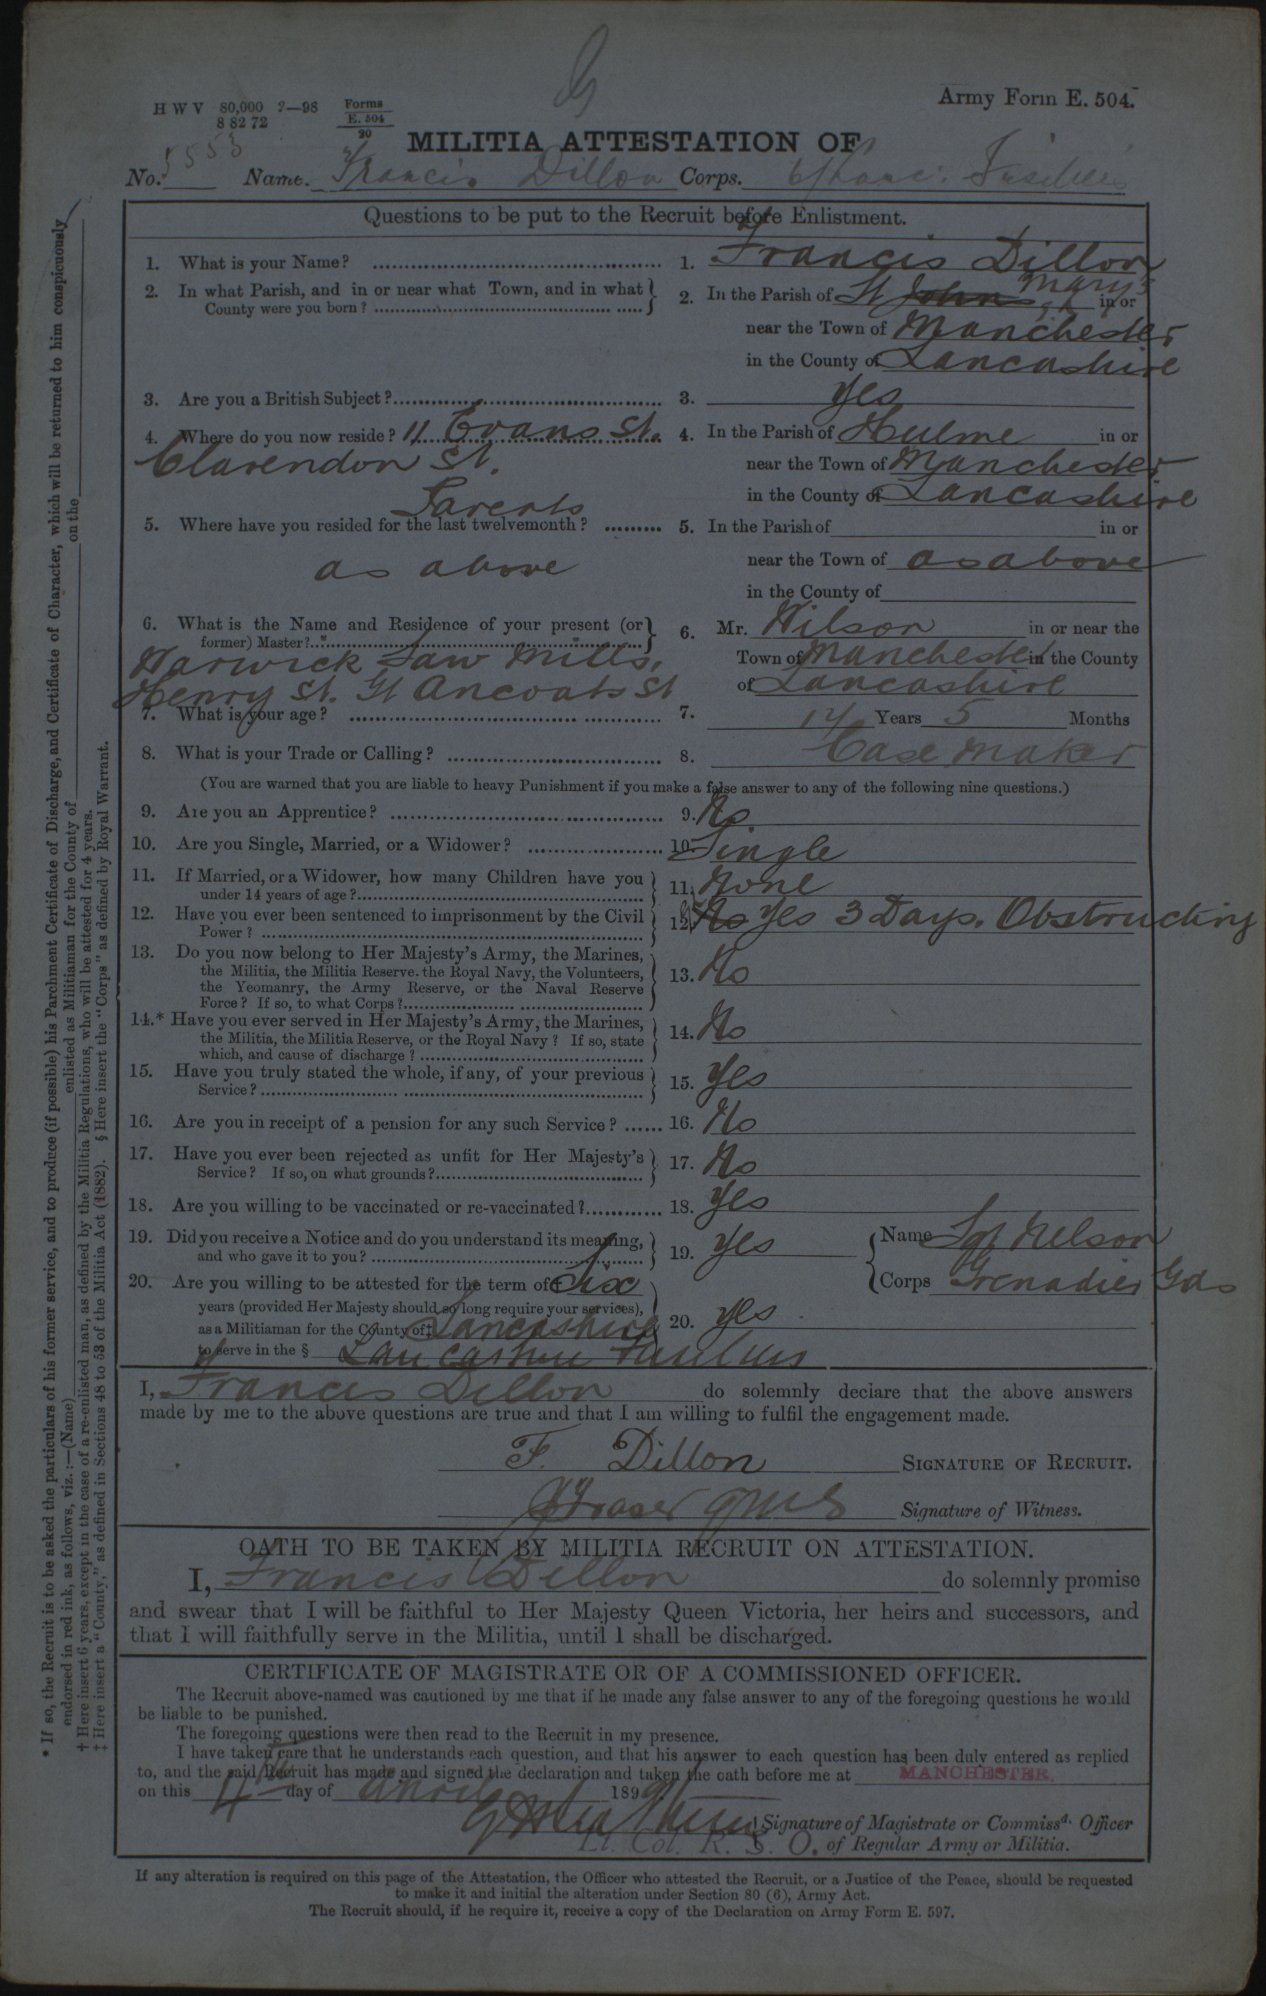 H W V 80,000 2—98 Forms
8 82 72 E. 504
20
Army Form E. 504.
MILITIA ATTESTATION OF
No. 5553 Name. Francis Dillon Corps. 6/Lanc: Fusiliers
Questions to be put to the Recruit before Enlistment.
1. What is your Name? 1. Francis Dillon
2. In what Parish, and in or near what Town, and in what County were you born? 2. In the Parish of St John Mary's in or
near the Town of Manchester
in the County of Lancashire
3. Are you a British Subject? 3. Yes
4. Where do you now reside? 11 Evans St. 4. In the Parish of Hulme in or
Clarendon St. near the Town of Manchester
in the County of Lancashire
Parents
5. Where have you resided for the last twelvemonth? 5. In the Parish of in or
as above near the Town of as above
in the County of
6. What is the Name and Residence of your present (or former) Master? 6. Mr. Wilson in or near the
Warwick Saw Mills, Town of Manchester in the County
Henry St. Gt Ancoats St of Lancashire
7. What is your age? 7. 17 Years 5 Months
8. What is your Trade or Calling? 8. Case Maker
(You are warned that you are liable to heavy Punishment if you make a false answer to any of the following nine questions.)
9. Are you an Apprentice? 9. No
10. Are you Single, Married, or a Widower? 10. Single
11. If Married, or a Widower, how many Children have you
under 14 years of age? 11. None
12. Have you ever been sentenced to imprisonment by the Civil
Power? 12. No Yes 3 Days. Obstructing
13. Do you now belong to Her Majesty's Army, the Marines,
the Militia, the Militia Reserve. the Royal Navy, the Volunteers,
the Yeomanry, the Army Reserve, or the Naval Reserve
Force? If so, to what Corps? 13. No
14.* Have you ever served in Her Majesty's Army, the Marines,
the Militia, the Militia Reserve, or the Royal Navy? If so, state
which, and cause of discharge? 14. No
15. Have you truly stated the whole, if any, of your previous
Service? 15. Yes
16. Are you in receipt of a pension for any such Service? 16. No
17. Have you ever been rejected as unfit for Her Majesty's
Service? If so, on what grounds? 17. No
18. Are you willing to be vaccinated or re-vaccinated? 18. Yes
19. Did you receive a Notice and do you understand its meaning,
and who gave it to you? 19. Yes Name Sgt Nelson
Corps Grenadier Gds
20. Are you willing to be attested for the term of† Six
years (provided Her Majesty should so long require your services),
as a Militiaman for the County of‡ Lancashire 20. Yes
to serve in the § Lancashire Fusiliers
I, Francis Dillon do solemnly declare that the above answers
made by me to the above questions are true and that I am willing to fulfil the engagement made.
F. Dillon SIGNATURE OF RECRUIT.
Fraser QMS Signature of Witness.
OATH TO BE TAKEN BY MILITIA RECRUIT ON ATTESTATION.
I, Francis Dillon do solemnly promise
and swear that I will be faithful to Her Majesty Queen Victoria, her heirs and successors, and
that I will faithfully serve in the Militia, until I shall be discharged.
CERTIFICATE OF MAGISTRATE OR OF A COMMISSIONED OFFICER.
The Recruit above-named was cautioned by me that if he made any false answer to any of the foregoing questions he would
be liable to be punished.
The foregoing questions were then read to the Recruit in my presence.
I have taken care that he understands each question, and that his answer to each question has been duly entered as replied
to, and the said Recruit has made and signed the declaration and taken the oath before me at MANCHESTER.
on this 4th day of April 189
Signature of Magistrate or Commissd. Officer
Lt. Col. R. S. O. of Regular Army or Militia.
If any alteration is required on this page of the Attestation, the Officer who attested the Recruit, or a Justice of the Peace, should be requested
to make it and initial the alteration under Section 80 (6), Army Act.
The Recruit should, if he require it, receive a copy of the Declaration on Army Form E. 597.
* If so, the Recruit is to be asked the particulars of his former service, and to produce (if possible) his Parchment Certificate of Discharge, and Certificate of Character, which will be returned to him conspicuously
endorsed in red ink, as follows, viz. :—(Name) enlisted as Militiaman for the County of on the
† Here insert 6 years, except in the case of a re-enlisted man, as defined by the Militia Regulations, who will be attested for 4 years.
‡ Here insert a "County," as defined in Sections 48 to 53 of the Militia Act (1882). § Here insert the "Corps" as defined by Royal Warrant.